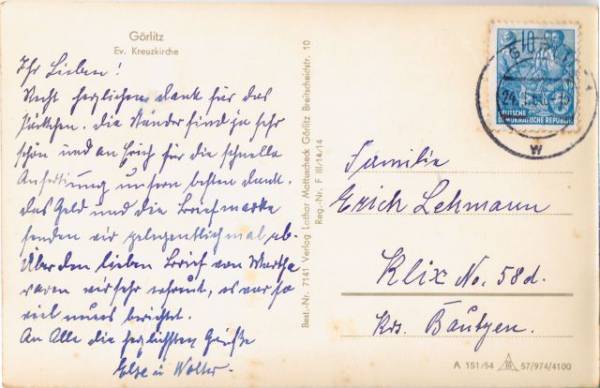 Görlitz
Ev. Kreuzkirche
Ihr Lieben!
Recht herzlichen Dank für das
Päckchen. Die Ständer sind ja sehr
schön und an Erich für die schnelle
Anfertigung unsern besten Dank.
Das Geld und die Briefmarke
senden wir gelegentlich mal ab.
Über den lieben Brief von Martha
waren wir sehr erfreut, es war so
viel neues berichtet.
An Alle die herzlichsten Grüße
Else u. Walter.
Best.-Nr. 7141 Verlag Lothar Görlitz, Breitscheidstr. 10
Reg.-Nr. F III/14/14
10
DEUTSCHE
DEMOKRATISCHE REPUBLIK
24.
W
Familie
Erich Lehmann
Klix No. 58d.
Krs. Bautzen.
A 151/54 57/974/4100